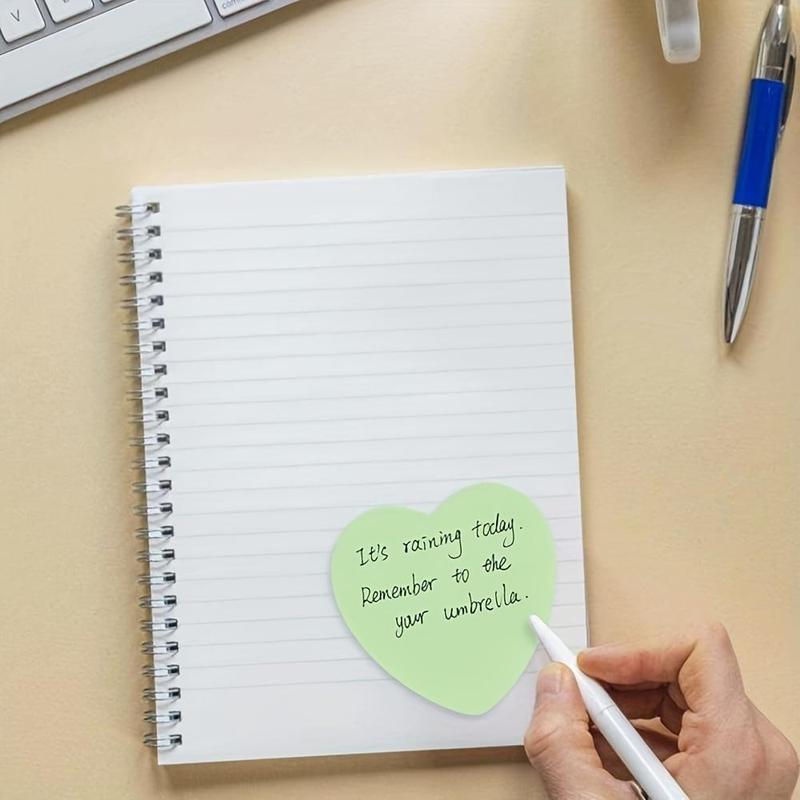 V
It's raining today.
Remember to the
your umbrella.